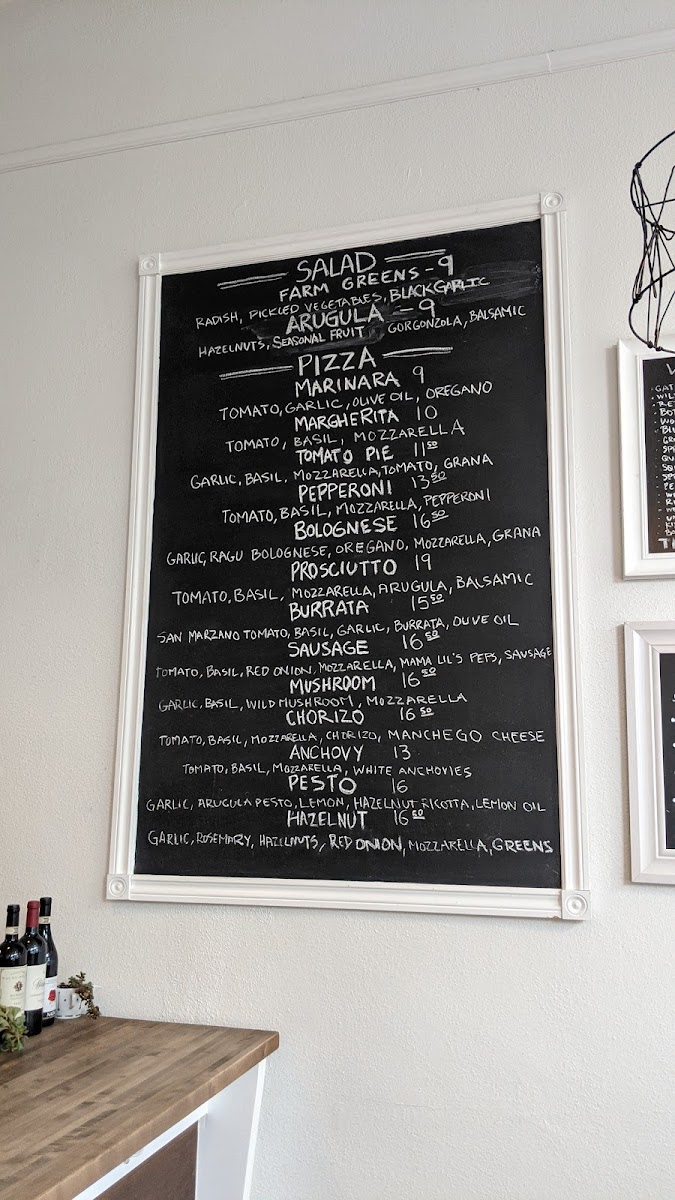 SALAD
FARM GREENS - 9
RADISH, PICKLED VEGETABLES, BLACK GARLIC
ARUGULA - 9
HAZELNUTS, SEASONAL FRUIT GORGONZOLA, BALSAMIC
PIZZA
MARINARA 9
TOMATO, GARLIC, OLIVE OIL, OREGANO
MARGHERITA 10
TOMATO, BASIL, MOZZARELLA
TOMATO PIE 11 50
GARLIC, BASIL, MOZZARELLA, TOMATO, GRANA
PEPPERONI 13 50
TOMATO, BASIL, MOZZARELLA, PEPPERONI
BOLOGNESE 16 50
GARLIC, RAGU BOLOGNESE, OREGANO, MOZZARELLA, GRANA
PROSCIUTTO 19
TOMATO, BASIL, MOZZARELLA, ARUGULA, BALSAMIC
BURRATA 15 50
SAN MARZANO TOMATO, BASIL, GARLIC, BURRATA, OLIVE OIL
SAUSAGE 16 50
TOMATO, BASIL, RED ONION, MOZZARELLA, MAMA LIL'S PEPS, SAUSAGE
MUSHROOM 16 50
GARLIC, BASIL, WILD MUSHROOM, MOZZARELLA
CHORIZO 16 50
TOMATO, BASIL, MOZZARELLA, CHORIZO, MANCHEGO CHEESE
ANCHOVY 13
TOMATO, BASIL, MOZZARELLA, WHITE ANCHOVIES
PESTO 16
GARLIC, ARUGULA PESTO, LEMON, HAZELNUT RICOTTA, LEMON OIL
HAZELNUT 16 50
GARLIC, ROSEMARY, HAZELNUTS, RED ONION, MOZZARELLA, GREENS